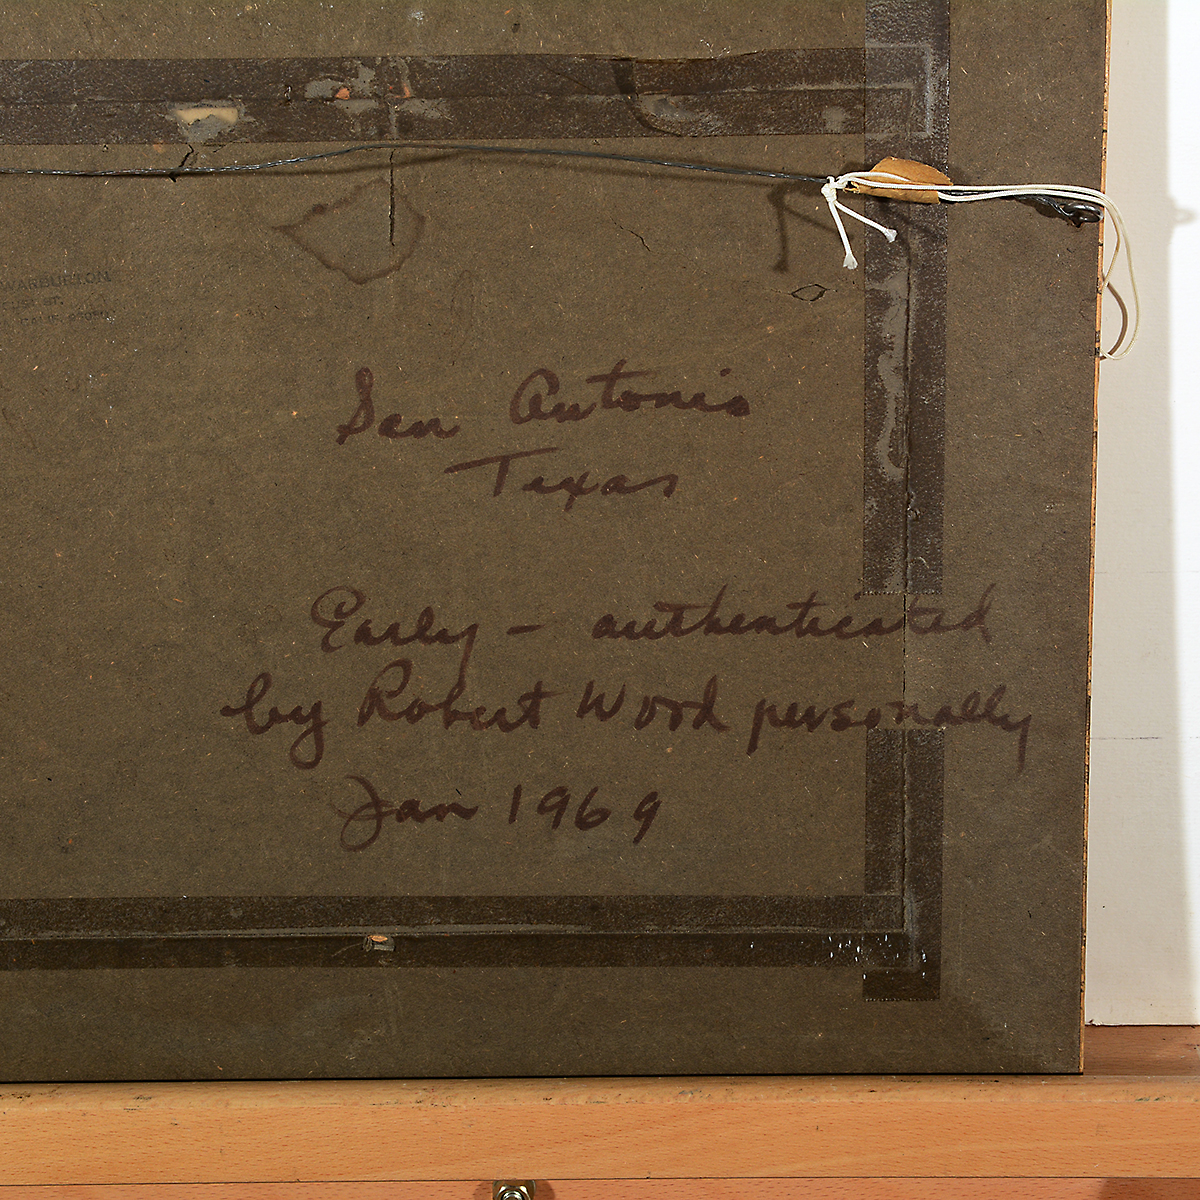 WARBURTON
ST.
CALIF.
San Antonio
Texas
Early - authenticated
by Robert Wood personally
Jan 1969